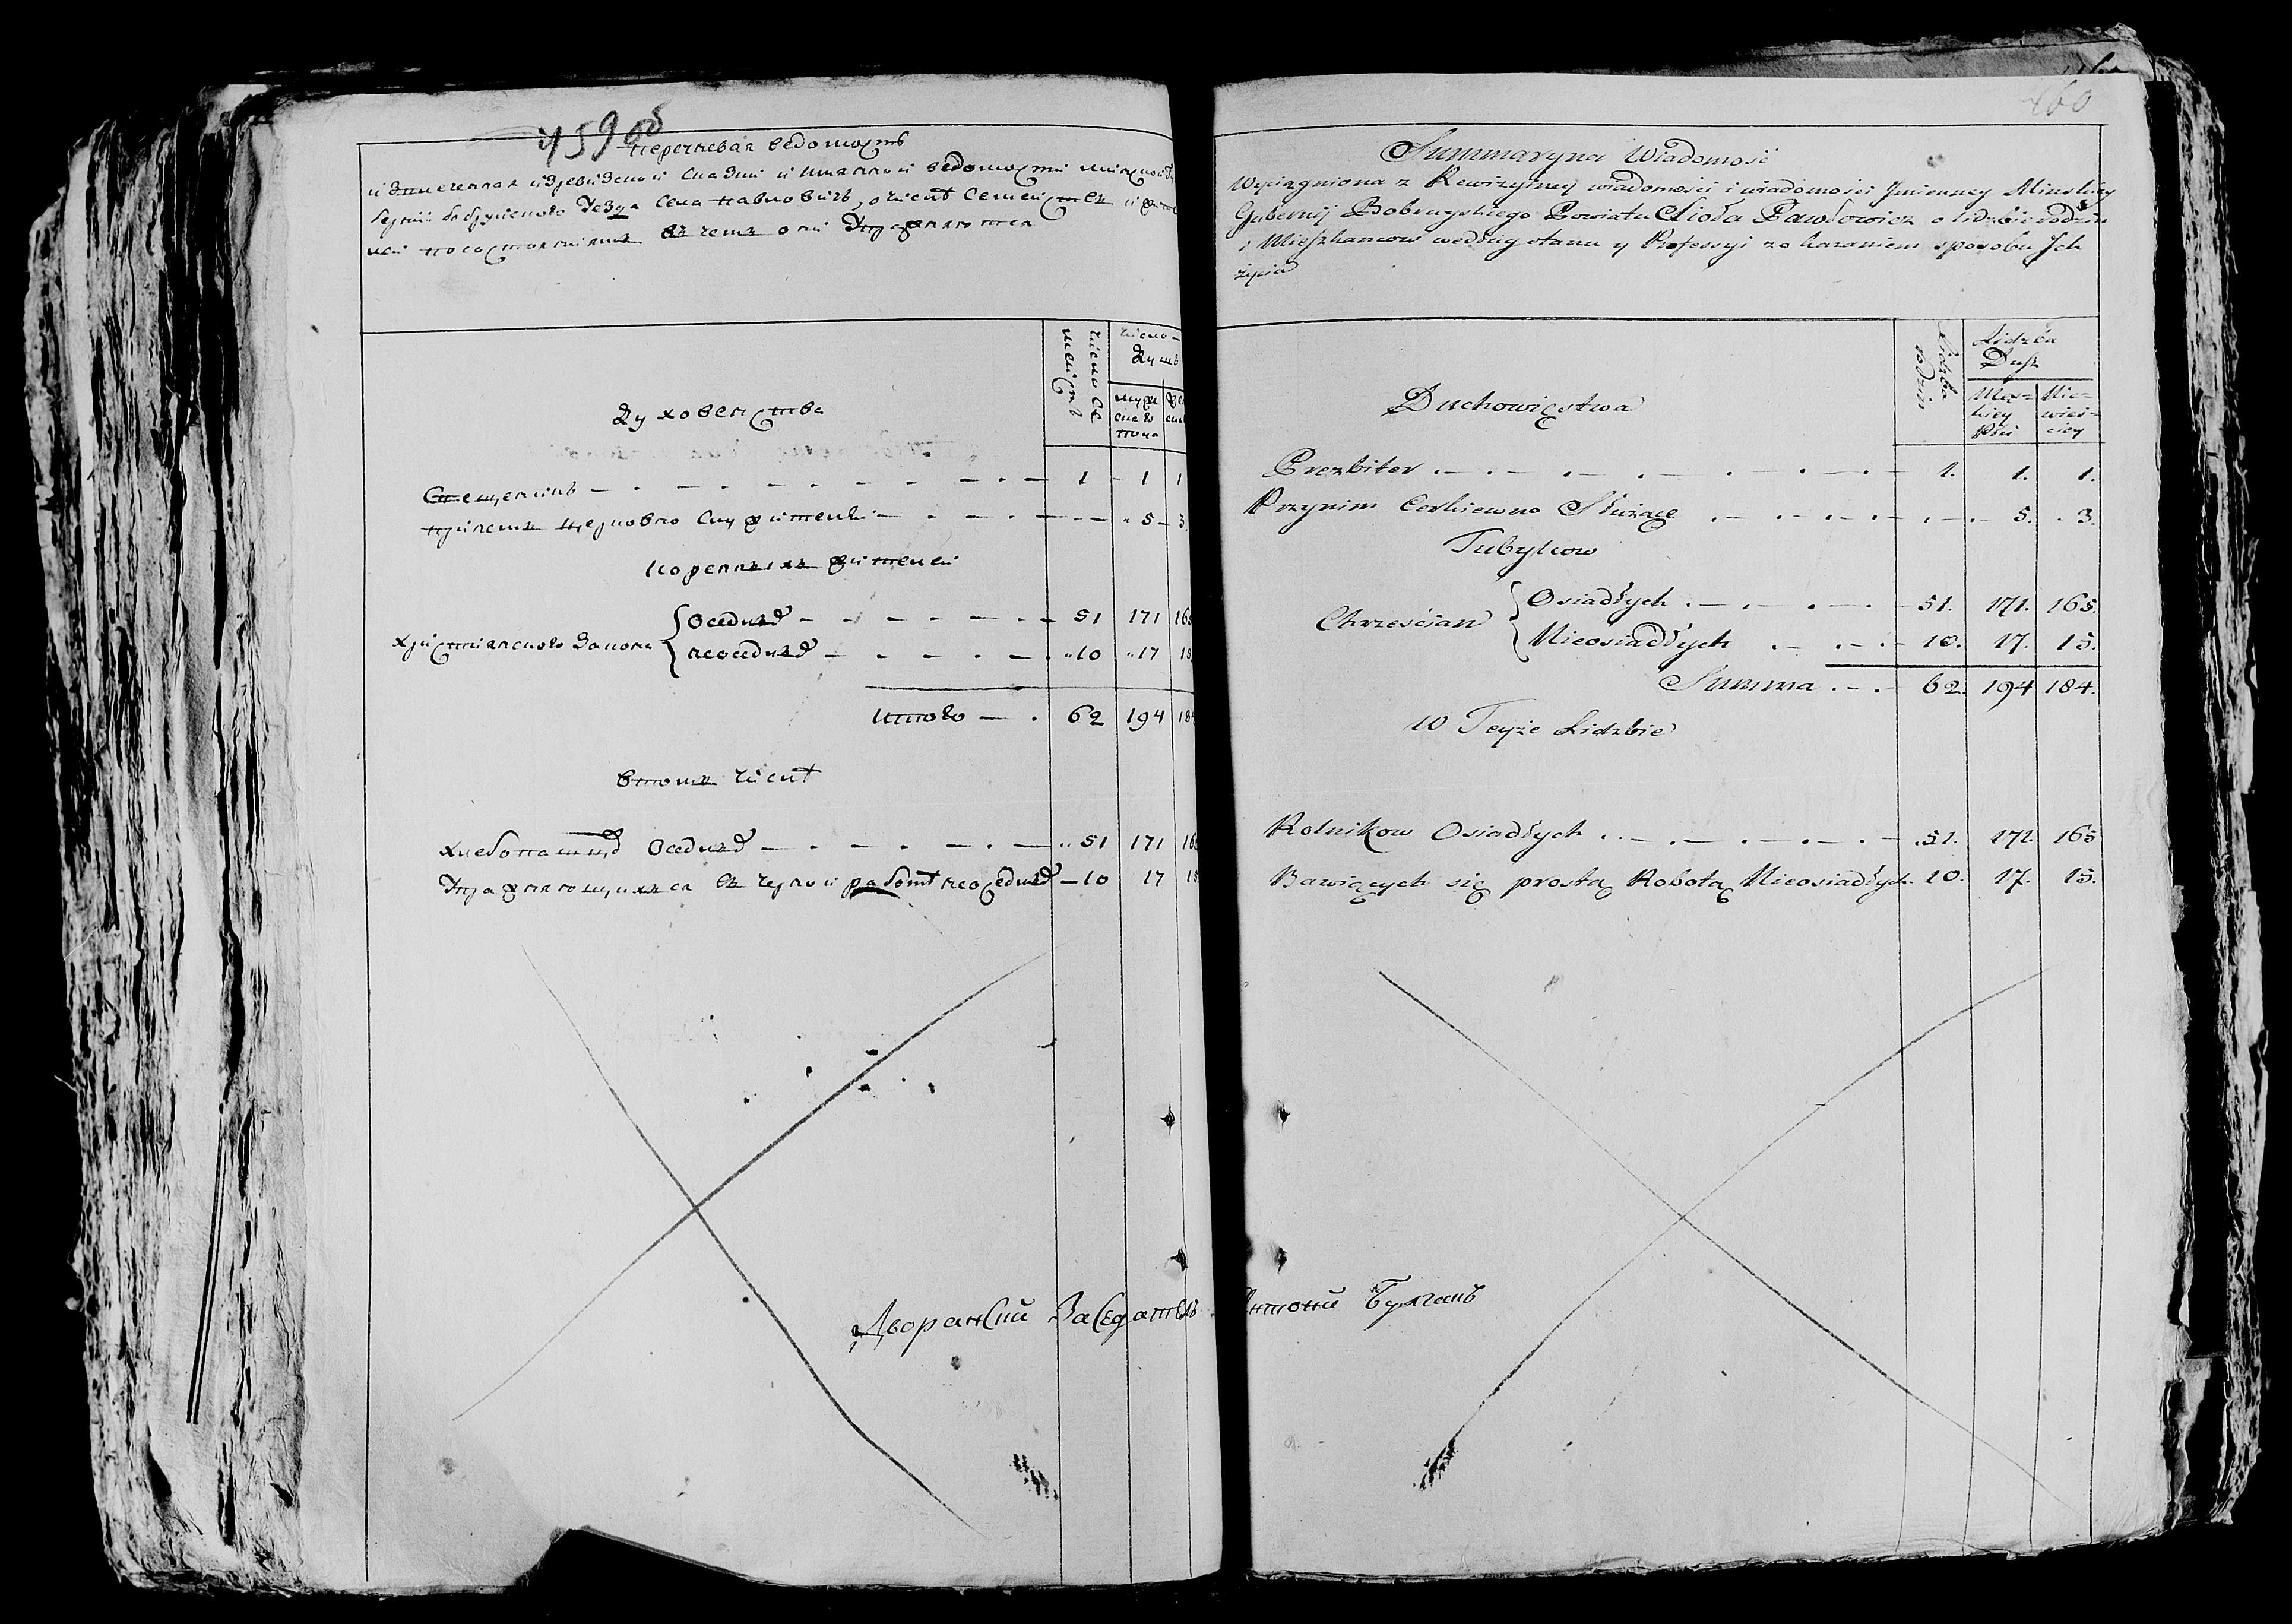 459 об
перечневая ведомость
извлеченная изревизской сказки и имянной ведомости минской гу
бернии бобруйскаго уезда села павловичь, очисле семействъ и жите
лей посостояниямъ въ чемъ они упражняются
число се
мействъ
число
душъ
муже
скаго
пола
духовенства
Священникъ 1 1 1
причетъ церковно служители 5 3
коренныхъ жителей
Християнскаго закона
{ оседлыхъ 51 171 165
неоседлыхъ 10 17 15
итого 62 194 184
втомъ числе
хлебопашцовъ оседлыхъ 51 171 165
упражняющихся въ черной работе неоседлыхъ 10 17 15
Дворянский Заседатель Антоний Булгакъ
460
Summaryna Wiadomość
Wyciągniona z Rewizyiney wiadomości i wiadomości Jmienney Minskiey
Gubernij Bobruyskiego Powiatu Sioła Pawłowicz o liczbie rodzin
i Mieszkancow według stanu y Professyi zo kazaniem sposobu Jch
życia
Liczba
rodzin
Liczba
Dusz
Męz-
kiey
Płci
Nie-
wieś-
ciey
Duchowięstwa
Prezbiter 1. 1. 1.
Przynim Cerkiewno Służące 5. 3.
Tubylcow
Chrześcian
{ Osiadłych 51. 171. 165.
Nieosiadłych 10. 17. 15.
Summa 62. 194 184.
w Teyże Liczbie
Rolnikow Osiadłych 51. 171. 165
Bawiących się prostą Robotą Nieosiadłych 10. 17. 15.